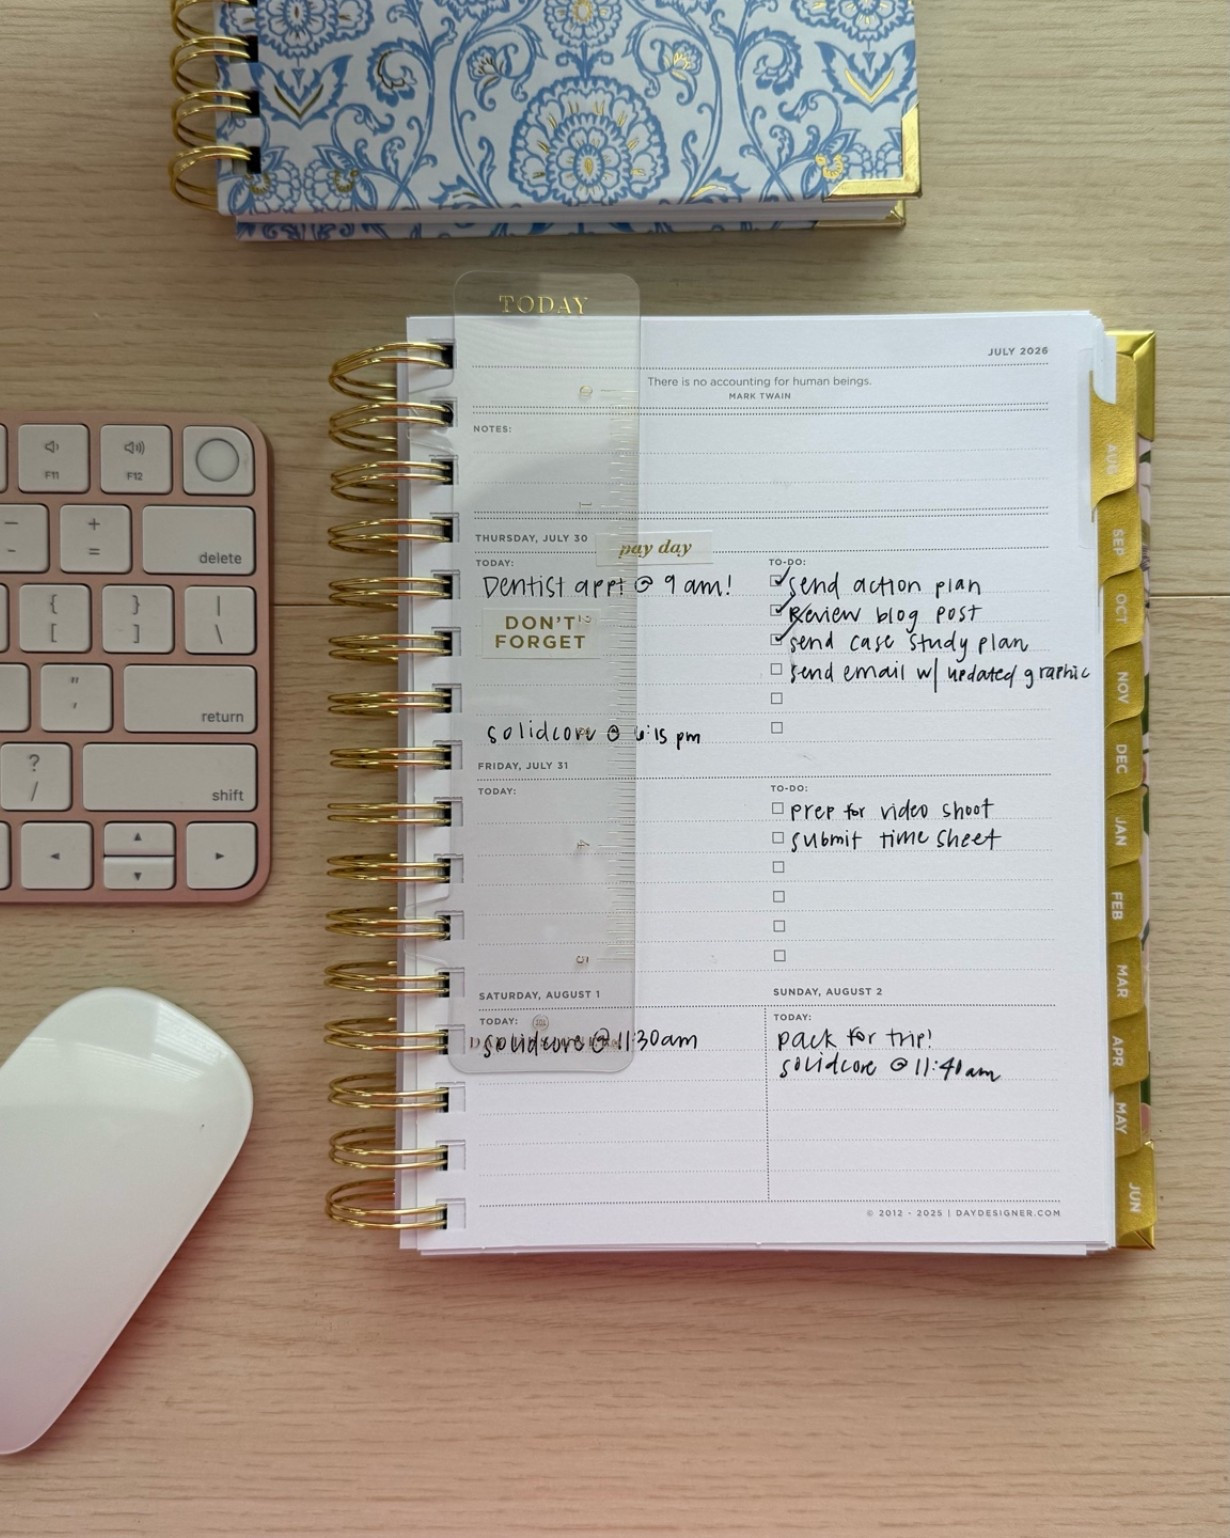 TODAY
JULY 2026
There is no accounting for human beings.
MARK TWAIN
NOTES:
THURSDAY, JULY 30
pay day
TODAY:
Dentist appt @ 9 am!
DON'T
FORGET
solidcore @ 6:15 pm
TO-DO:
send action plan
Review blog post
send case study plan
send email w/ updated graphic
FRIDAY, JULY 31
TODAY:
TO-DO:
prep for video shoot
submit time sheet
SATURDAY, AUGUST 1
TODAY:
solidcore @ 11:30am
SUNDAY, AUGUST 2
TODAY:
pack for trip!
solidcore @ 11:40am
© 2012 - 2025 | DAYDESIGNER.COM
AUG
SEP
OCT
NOV
DEC
JAN
FEB
MAR
APR
MAY
JUN
4
5
F11
F12
- -
+ =
delete
{ [
} ]
| \
" '
return
? /
shift